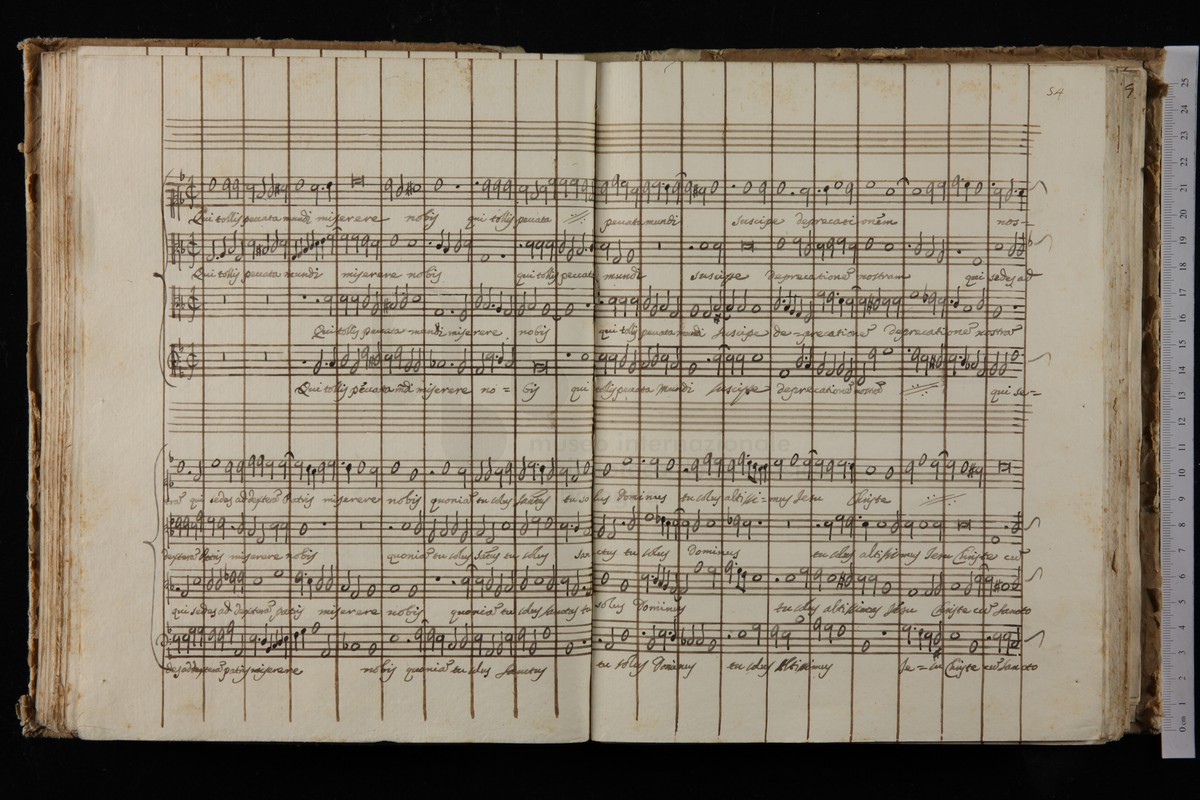 54
5
Qui tollis peccata mundi miserere nobis qui tollis peccata peccata mundi suscipe deprecationem nos-
Qui tollis peccata mundi miserere nobis qui tollis peccata mundi suscipe deprecatione nostram qui sedes ad
Qui tollis peccata mundi miserere nobis qui tollis peccata mundi suscipe de-precatione deprecatione nostra
Qui tollis peccata mūdi miserere no= bis qui tollis peccata mundi suscipe deprecatione qui se=
museo internazionale
qui sedes ad dextera Patris miserere nobis quonia tu solus tu solus dominus tu solus altissi=mus Jesu Christe
dextera Patris miserere nobis quonia tu solus Sctus tu solus Sanctus tu solus Dominus tu solus altissimus Jesu Christe cu
qui sedes ad dextera patris miserere nobis quonia tu solus sanctus tu solus Dominus tu solus altissimus Jesu Christe cu Sancto
patris miserere nobis quonia tu solus Sanctus tu solus Dominus tu solus Altissimus Je=su Christe cu Sancto
25 24 23 22 21 20 19 18 17 16 15 14 13 12 11 10 9 8 7 6 5 4 3 2 1 0 cm